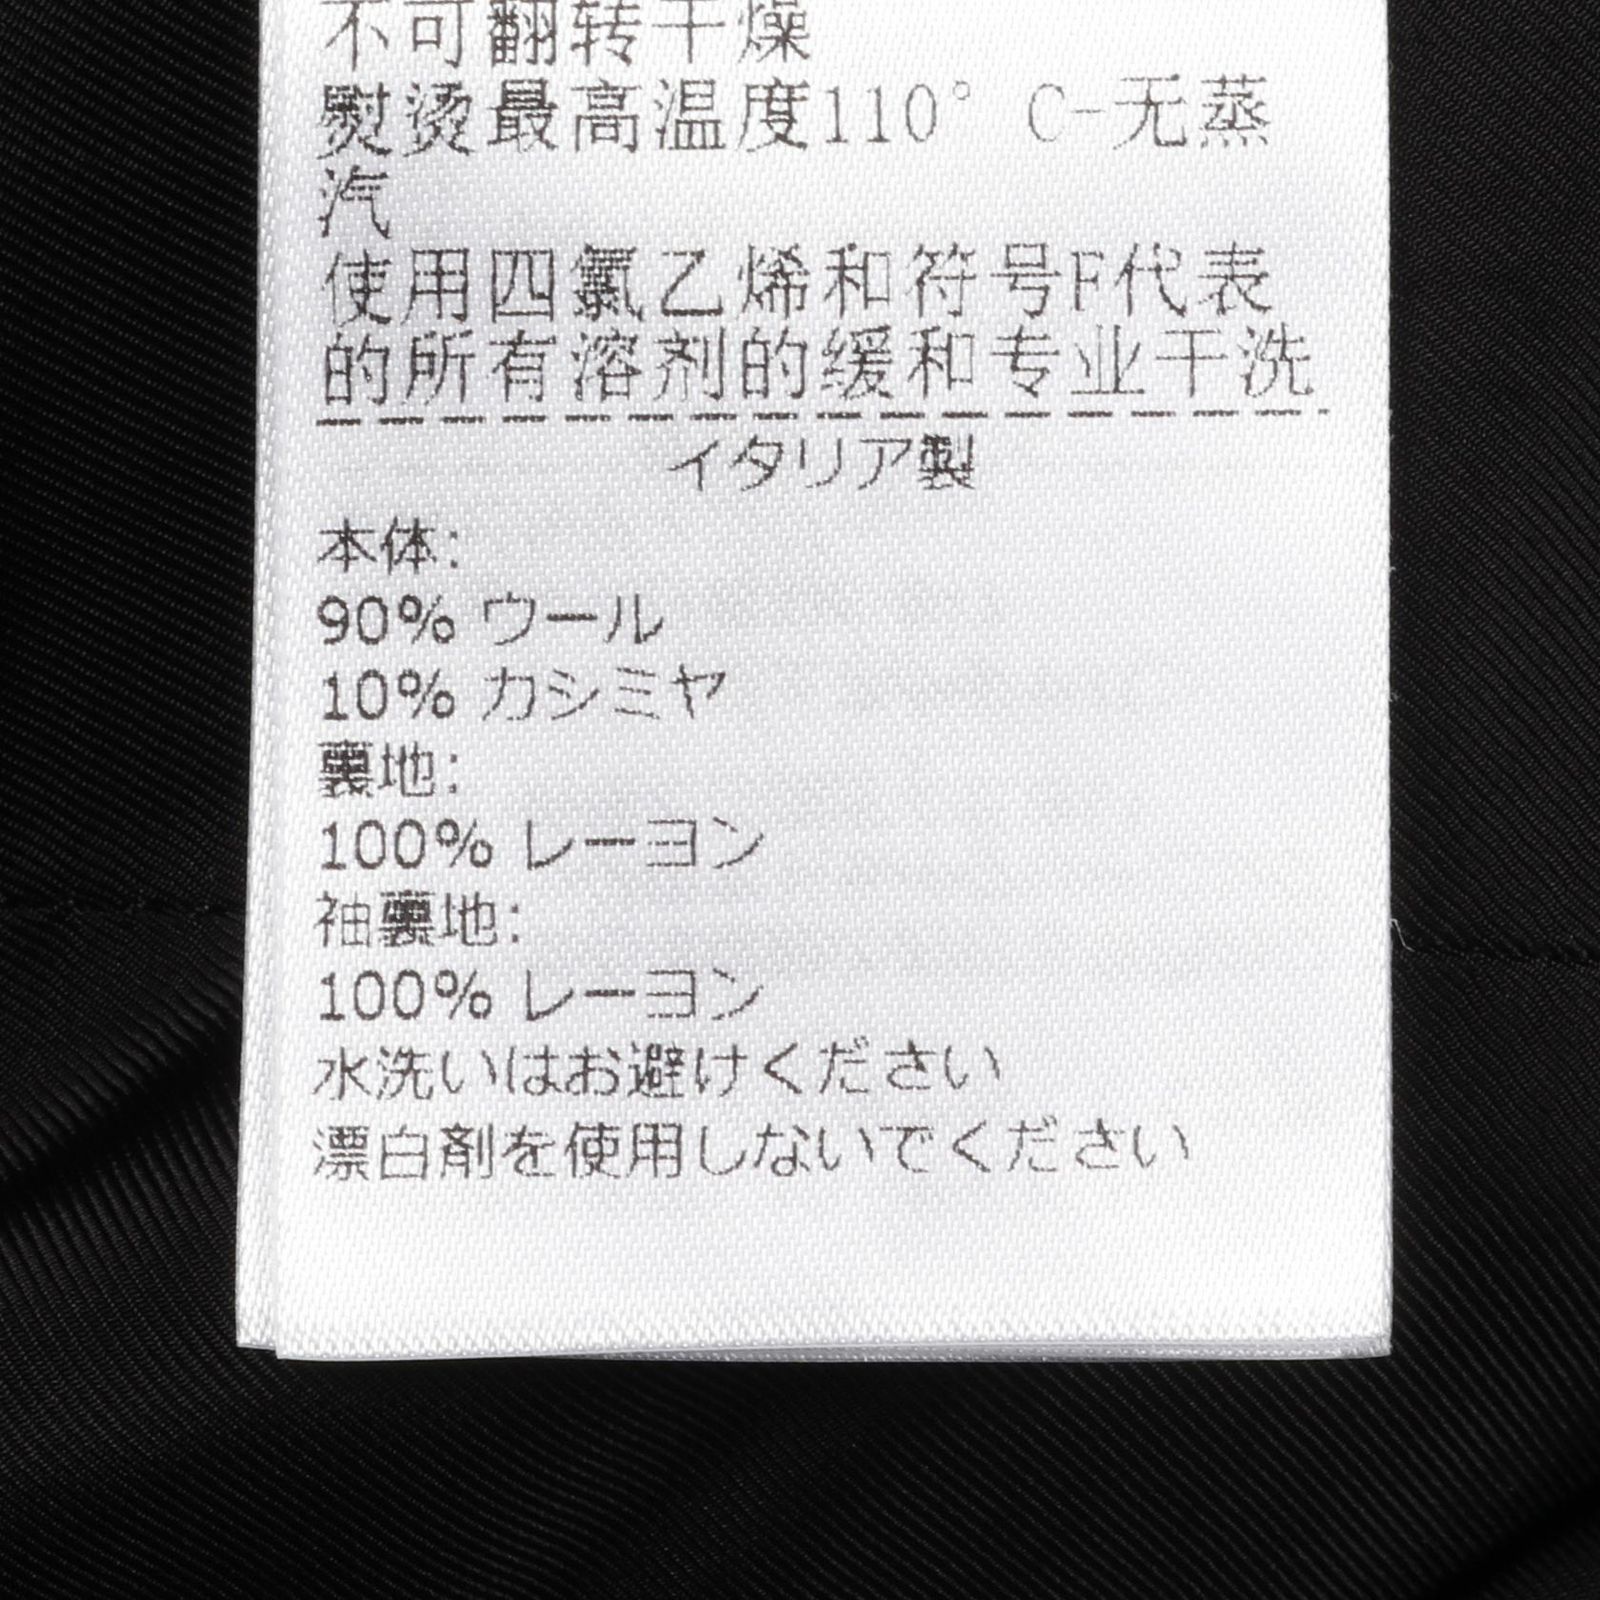 不可翻转干燥
熨烫最高温度110° C-无蒸
汽
使用四氯乙烯和符号F代表
的所有溶剂的缓和专业干洗
イタリア製
本体:
90% ウール
10% カシミヤ
裏地:
100% レーヨン
袖裏地:
100% レーヨン
水洗いはお避けください
漂白剤を使用しないでください